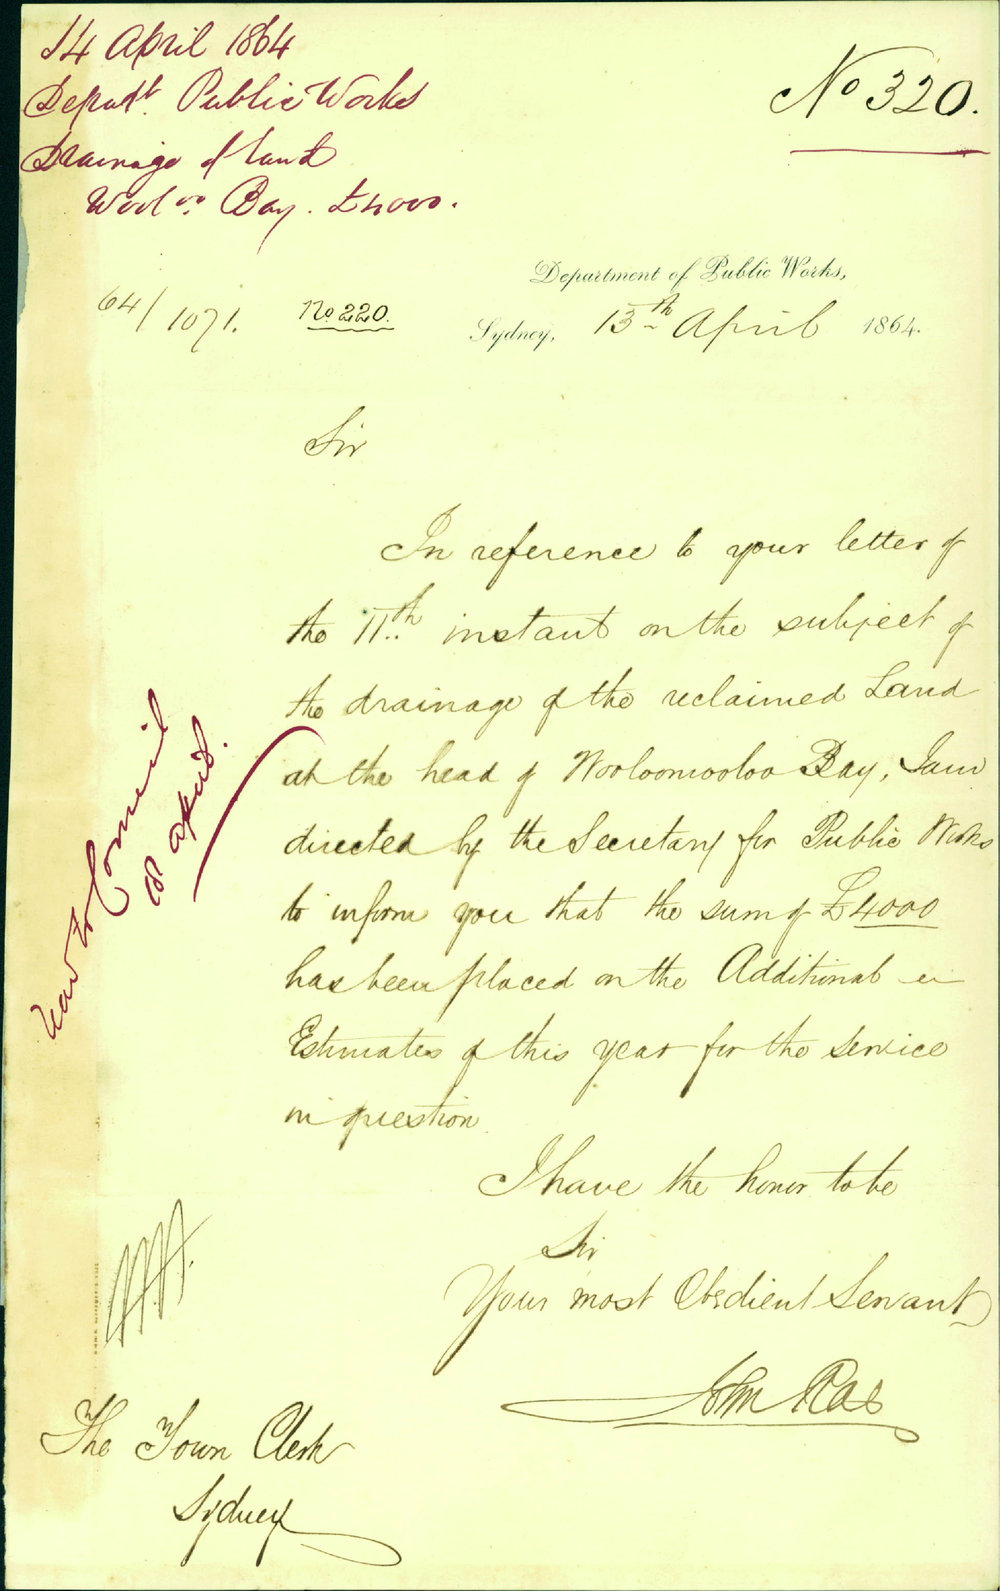 14 April 1864
Depart. Public Works
Drainage of land
Wool oo Bay. £4000.
No 320.
64/1071.
No. 220.
Department of Public Works,
Sydney, 13th April 1864.
Sir
In reference to your letter of
the 11th instant on the subject of
the drainage of the reclaimed Land
at the head of Wooloomooloo Bay, I am
directed by the Secretary for Public Works
to inform you that the sum of £4000
has been placed on the Additional
Estimates of this year for the service
in question.
I have the honor to be
Sir
Your most Obedient Servant
John Rae
to Council
18 April.
The Town Clerk
Sydney